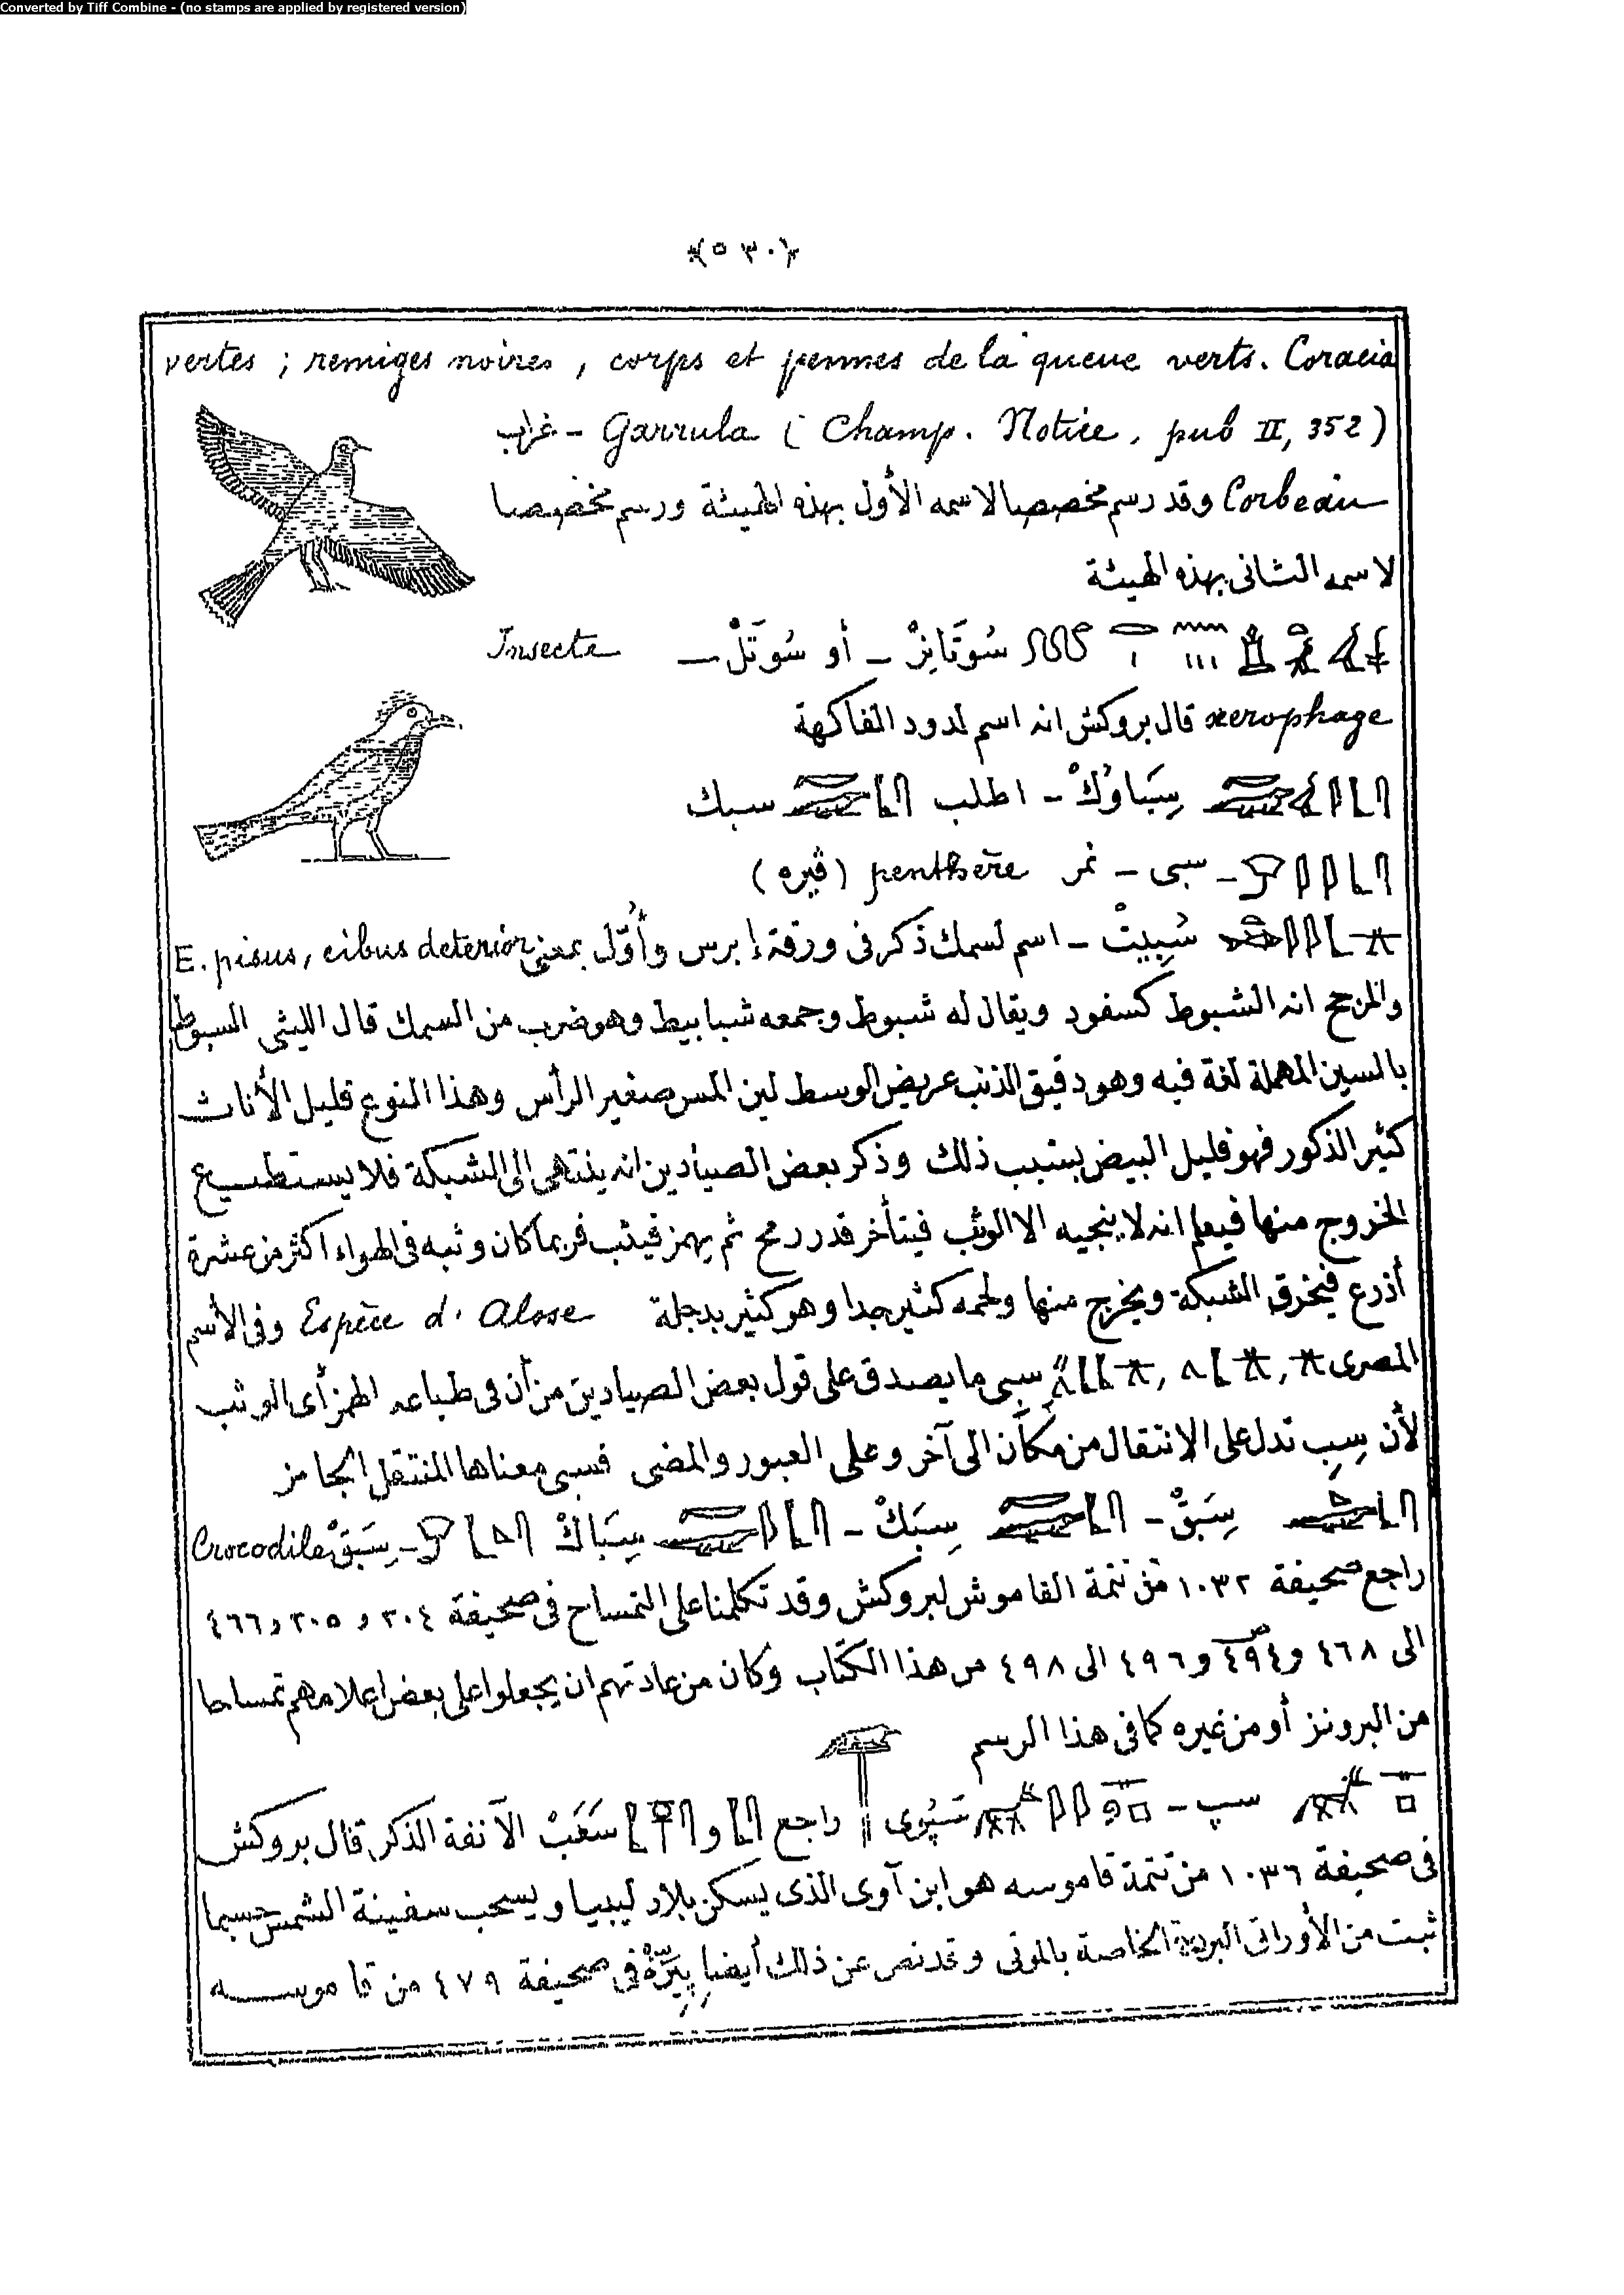 Converted by Tiff Combine - (no stamps are applied by registered version)
﴿٥٣٠﴾
vertes ; remiges noires , corps et pennes de la queue verts. Coracia
Garrula ( Champ. Notice, pub II, 352 ) - غراب
Corbeau وقد رسم مخصصا لاسمه الأول بهذه الهيئة ورسم مخصصا
لاسمه الثانى بهذه الهيئة
سُوتَانِرْ - أو سُوتَلْ - Insecte
xerophage قال بروكش انه اسم لدود الفاكهة
سِبَاوُكْ - اطلب سبك
- سبى - نمر penthère (ڤيره)
سُبِيتْ - اسم لسمك ذكر فى ورقة إبرس وأُوّل بمعنى E. pisus, cibus deterior
والمرجح انه الشبوط كسفود ويقال له شبوط وجمعه شبابيط وهو ضرب من السمك قال الليثى السبوط
بالسين المهملة لغة فيه وهو دقيق الذنب عريض الوسط لين المس صغير الرأس وهذا النوع قليل الأناث
كثير الذكور فهو قليل البيض بسبب ذلك وذكر بعض الصيادين انه ينتهى الى الشبكة فلا يستطيع
الخروج منها فيعلم انه لا ينجيه الا الوثب فيتأخر قدر رمح ثم يهمز فيثب فربما كان وثبه فى الهواء اكثر من عشرة
أذرع فيخرق الشبكة ويخرج منها ولحمه كثير جدا وهو كثير بدجلة Espèce d'Alose وفى الاسم
المصرى سبى ما يصدق على قول بعض الصيادين من أن فى طباعه الهمز أى الوثب
لأن سِبِ تدل على الانتقال من مكان الى آخر وعلى العبور والمضى فسبى معناها المنتقل الجامز
سِبَقْ - سِبَكْ - سِبَاكْ - سِبَقْ Crocodile
راجع صحيفة ١٠٣٢ من تتمة القاموس لبروكش وقد تكلمنا على التمساح فى صحيفة ٢٠٤ و ٢٠٥ و ٤٦٦
الى ٤٦٨ و ٤٩٤ و ٤٩٦ الى ٤٩٨ من هذا الكتاب وكان من عادتهم ان يجعلوا على بعض اعلامهم تمساحا
من البرونز أو من غيره كما فى هذا الرسم
سپ - سَپُوِى راجع و سَعَبْ الآنفة الذكر قال بروكش
فى صحيفة ١٠٣٦ من تتمة قاموسه هو ابن آوى الذى يسكن بلاد ليبيا ويسحب سفينة الشمس حسبما
ثبت من الأوراق البردية الخاصة بالموتى وقد نص عن ذلك أيضا پِيَرِّهْ فى صحيفة ٤٧٩ من قاموسه